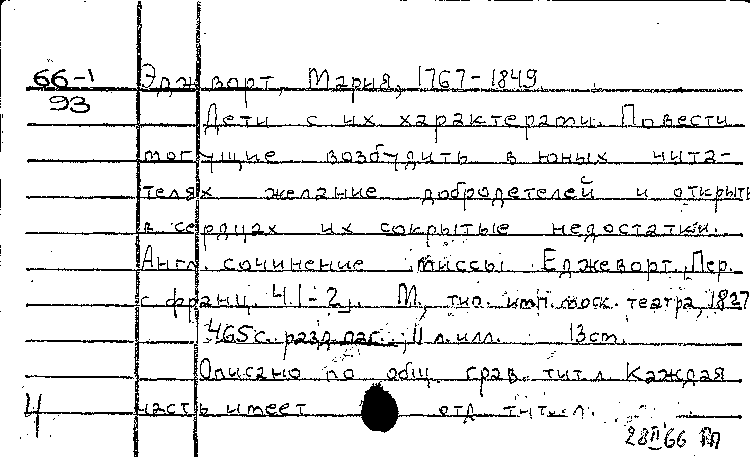 66-1 Эджворт, Мария, 1767-1849.
93
Дети с их характерами. Повести
могущие возбудить в юных чита-
телях желание добродетелей и открыть
в сердцах их сокрытые недостатки.
Англ. сочинение миссы Еджеворт. Пер.
с франц. Ч. 1-2. М., тип. имп. моск. театра, 1827
465 с. разд. паг., 11 л. илл. 13 см.
Описано по общ. грав. тит. л. Каждая
4 часть имеет отд. тит. л.
28 II 66